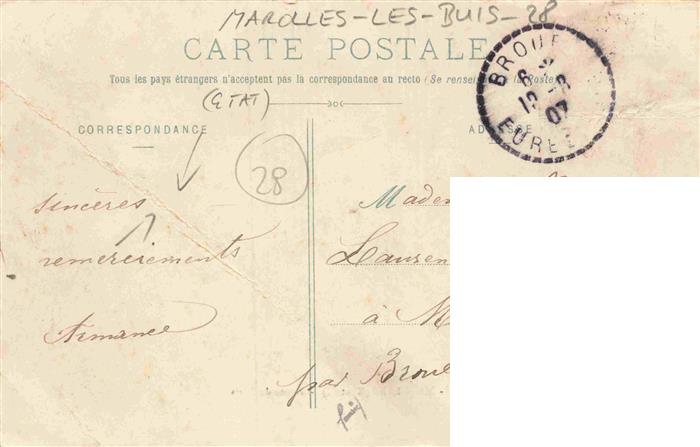 MAROLLES-LES-BUIS-28
CARTE POSTALE
Tous les pays étrangers n'acceptent pas la correspondance au recto (Se rensei la Poste
(ETAT)
CORRESPONDANCE
ADRESSE
BROUE
8
19 -8
07
EURE
28
sincères
remerciements
Armance
Madem
Lauren
à M
par Broue